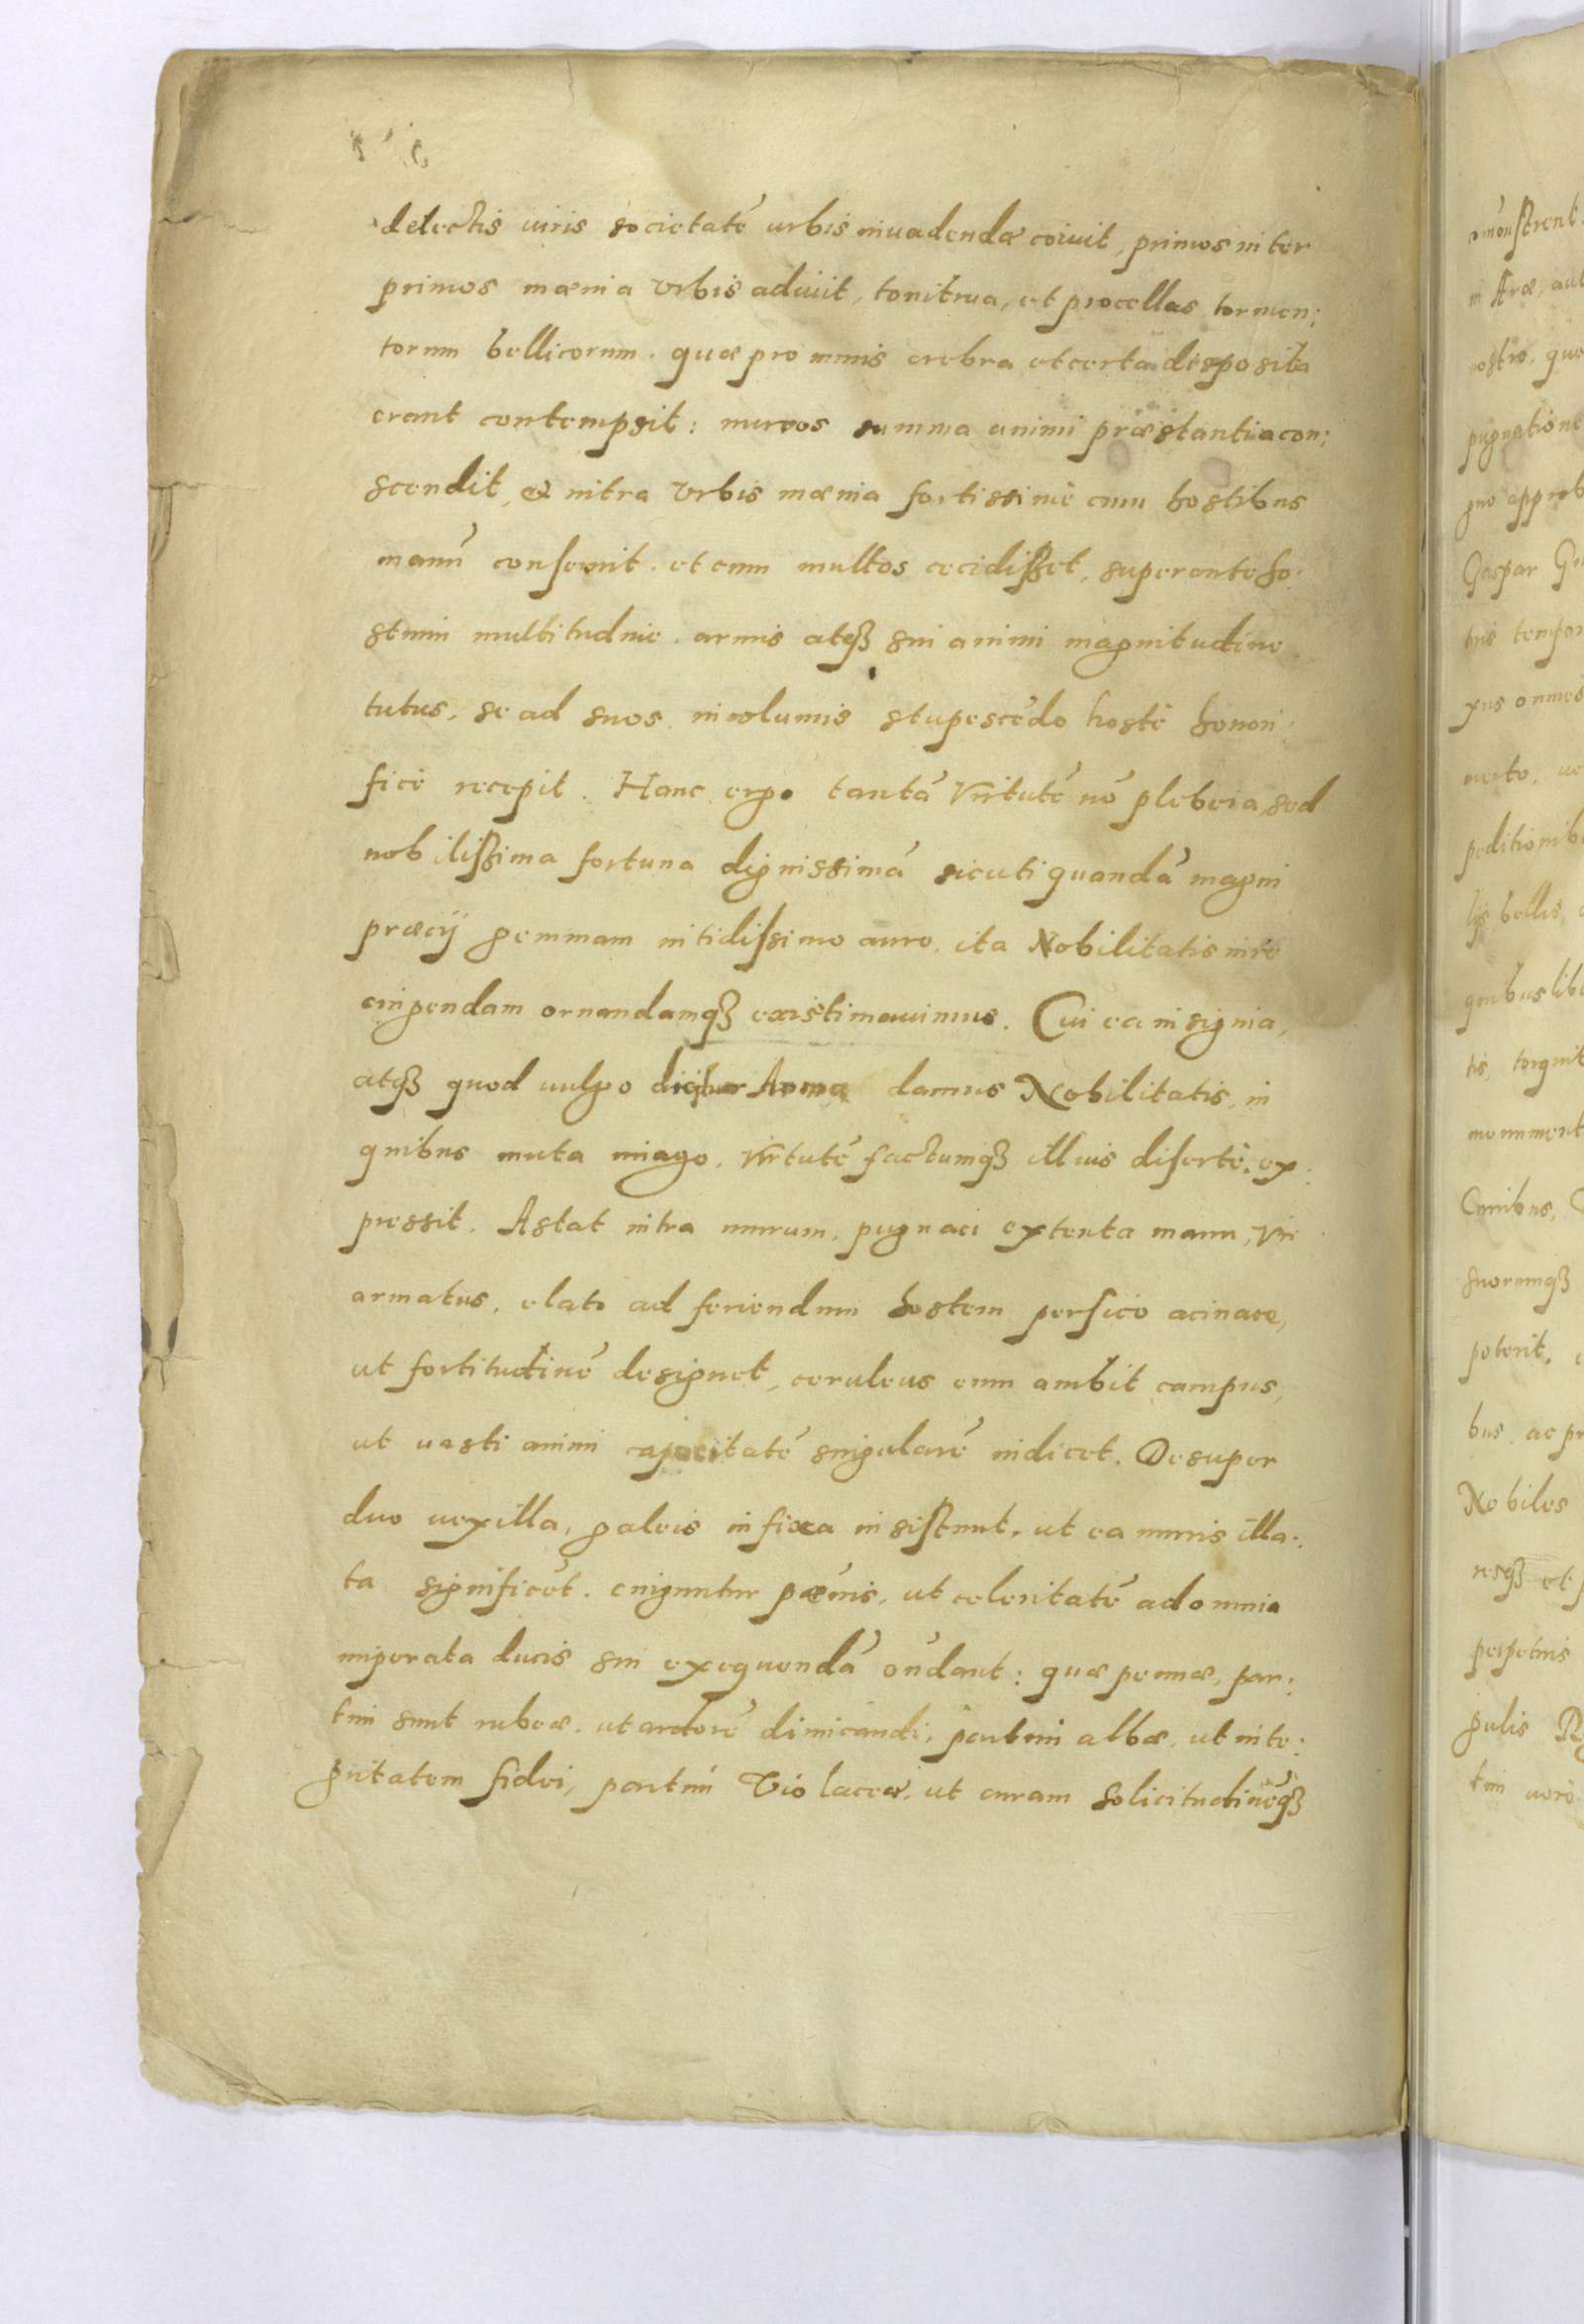 delectis viris societatē urbis invadendæ coivit, primos inter
primos mænia Vrbis adivit, tonitrua, et procellas tormen;
torum bellicorum. quæ pro muris crebra et certa disposita
erant contempsit: muros summa animi præstantia con;
scendit, & intra Vrbis mænia fortissimè cum hostibus
manū conseruit. et cum multos cecidißet, superante ho;
stium multitudine. armis atqȝ sui animi magnitudine
tutus, se ad suos incolumis stupescēdo hostē honori;
ficè recepit. Hanc ergo tantā Virtutē nō plebeia, sed
nobilißima fortuna dignissimā sicuti quandā magni
præcij gemmam nitidissimo auro, ita Nobilitatis iure
cingendam ornandamqȝ existimavimus. Cui ea insignia,
atqȝ quod vulgo dicitur Arma damus Nobilitatis, in
quibus muta imago, Virtutē factumqȝ illius disertè ex;
pressit. Astat intra murum, pugnaci extenta manu, Vir
armatus, elato ad feriendum hostem persico acinace,
ut fortitudinē designet, ceruleus eum ambit campus,
ut vasti animi capacitatē singularē indicet. Desuper
duo vexilla, galeis infixa insistunt, ut ea muris illa;
ta significēt. cinguntur pænis, ut celeritatē ad omnia
imperata ducis sui exequendā oñdant: quæ pennæ, par;
tim sunt rubeæ, ut ardorē dimicandi, partim albæ, ut inte;
gritatem fidei, partim Violaceæ, ut curam solicitudinēqȝ
omōnstrent
in Aræ, aut
nostro, que
pugnatione
Gaspar
tempor
omnes
peditionib
bellis
quibus lib
tis, torquit
monument
suorumqȝ
poterit,
bus, ac pr
Nobiles
resqȝ et
perpetuis
gulis
tim vero